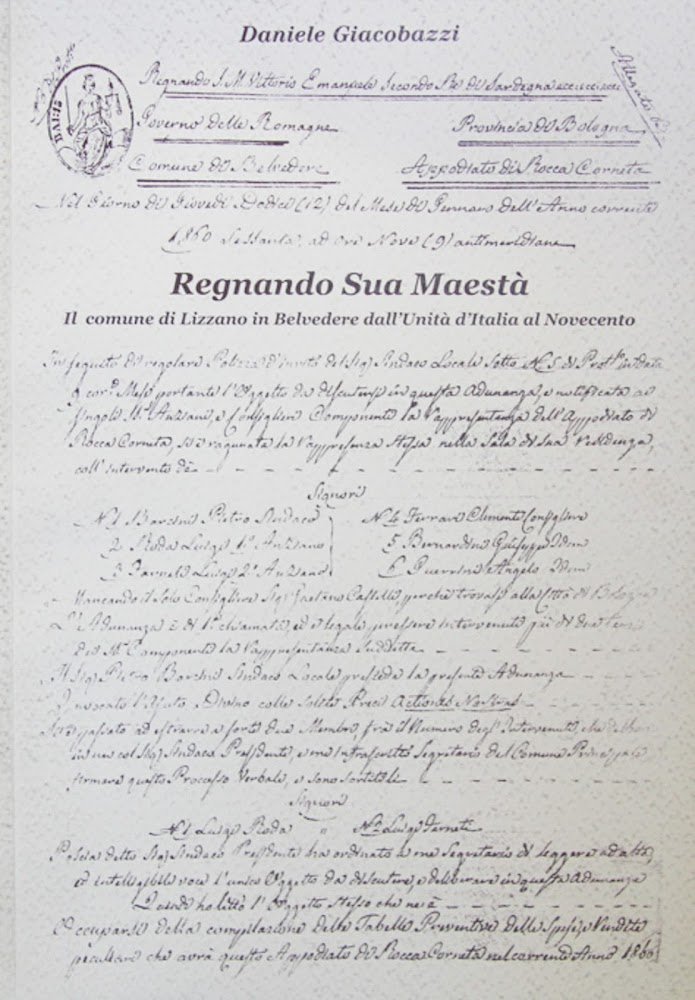 Daniele Giacobazzi
Allegato
BAJ 15
Regnando S. M. Vittorio Emanuele Secondo Re di Sardegna
Governo delle Romagne Provincia di Bologna
Comune di Belvedere Appodiato di Rocca Corneta
Nel Giorno di Giovedì Dodici (12) del Mese di Gennaro dell'Anno corrente
1860 sessanta, ad ore Nove (9) antimeridiane
Regnando Sua Maestà
Il comune di Lizzano in Belvedere dall'Unità d'Italia al Novecento
In seguito di regolare Polizza d'invito del Sig. Sindaco Locale sotto N. 5 di Prot. in data
9 cor. Mese portante l'Oggetto da discutersi in questa Adunanza, e notificata ai
Singoli Sri. Anziani, e Consiglieri Componenti la Rappresentanza dell'Appodiato di
Rocca Corneta, si è ragunata la Rappresenza stessa nella Sala di sua Residenza,
coll'intervento de
Signori
N. 1 Barcini Pietro Sindaco N. 4 Ferrari Clemente Consigliere
2 Roda Luigi 1° Anziano 5 Bernardini Giuseppe Idem
3 Farneti Luigi 2° Anziano 6 Guerrini Angelo Idem
Mancando il solo Consigliere Sig. Gaetano Castelli, perchè trovasi alla Città di Bologna
L'Adunanza è di 1a chiamata, ed è legale, per essere intervenuti più di due terzi
dei Sri. Componenti la Rappresentanza suddetta
Il Sig. Pietro Barcini Sindaco Locale presiede la presente Adunanza
Invocato l'Ajuto Divino colle solite Preci Actiones Nostras
Si è passato ad estrarre a sorte due Membri, fra il Numero degl'Intervenuti, che debbono
in un col Sig. Sindaco Presidente, e me infrascritto Segretario del Comune Principale
firmare questo Processo Verbale, e sono sortiti li
Signori
N. 1 Luigi Roda " N. 2 Luigi Ferneti
Poscia detto Sig. Sindaco Presidente ha ordinato a me Segretario di leggere ad alta,
ed intelligibil voce l'unico Oggetto da discutere, e deliberare in questa Adunanza
Quindi ho letto l'Oggetto stesso che ne è
Occuparsi della compilazione delle Tabelle Preventive delle Spese, e Rendite
peculiari che avrà questo Appodiato di Rocca Corneta nel corrente Anno 1860